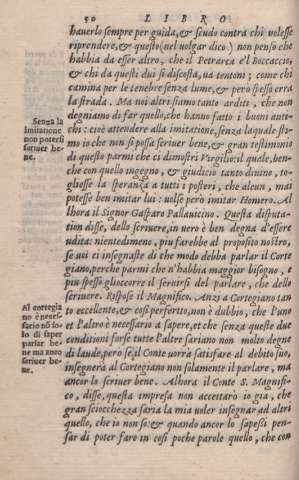 50 LIBRO
hauerlo sempre per guida, & scudo contra chi uolesse
riprendere, & questo (nel uolgar dico) non penso che
habbia da esser altro, che il Petrarca e'l Boccaccio,
& chi da questi dui si discosta, ua tentoni; come chi
camina per le tenebre senza lume, & però spesso erra
la strada. Ma noi altri siamo tanto arditi, che non
degniamo di far quello, che hanno fatto i buoni anti-
chi: cioè attendere alla imitatione, senza laquale sti-
mo io che non si possa scriuer bene, & gran testimonio
di questo parmi che ci dimostri Virgilio: il quale, ben-
che con quello ingegno, & giudicio tanto diuino, to-
gliesse la speranza a tutti i posteri, che alcun, mai
potesse ben imitar lui: uolse però imitar Homero. Al
lhora il Signor Gasparo Pallauicino. Questa disputa-
tion disse, dello scriuere, in uero è ben degna d'essere
udita: nientedimeno, piu farebbe al proposito nostro,
se uoi ci insegnaste di che modo debba parlar il Corte
giano, perche parmi che n'habbia maggior bisogno, e
piu spesso gli occorre il seruirsi del parlare, che dello
scriuere. Rispose il Magnifico. Anzi a Cortegiano tan
to eccellente, & cosi perfetto, non è dubbio, che l'uno
et l'altro è necessario a sapere, et che senza queste due
conditioni forse tutte l'altre sariano non molto degne
di laude, però se il Conte uorrà satisfare al debito suo,
insegnerà al Cortegiano non solamente il parlare, ma
ancor lo scriuer bene. Alhora il Conte S. Magnifi-
co, disse, questa impresa non accettarò io già, che
gran sciocchezza saria la mia uoler insegnar ad altri
quello, che io non so: & quando ancor lo sapessi, pen-
sar di poter faro in così poche parole quello, che con
Senza la
imitatione
non potersi
scriuer be-
ne.
Al cortegia
no è neces-
sario nõ so
lo di saper
parlar be-
ne ma anco
scriuer be-
ne.